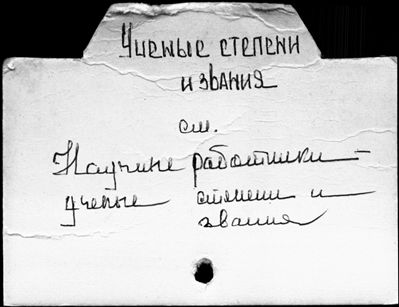 Ученые степени
и звания
см.
Научные работники –
ученые степени и
звания